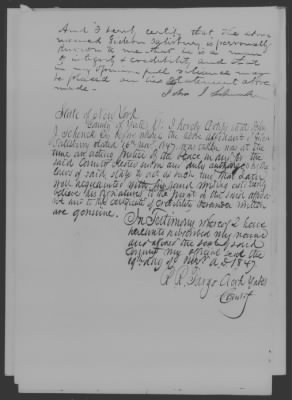 And I certify that the above
named Gideon Salisbury is personally
known to me that he is a man
of integrity & credibility and that
in my opinion full reliance may
be placed in his statement above
made.
John J Schenck
State of New York
County of Yates SS I hereby Certify that John
J Schenck Esq before whom the above affidavit of
Salisbury dated 16th Nov 1847, was taken was at the
time an acting Justice of the Peace in and for the
said County duly authorized by the
laws of said State to act as such and that I am
well acquainted with his hand writing and verily
believe his signatures to the jurat in the said
and to the certificate of credibility hereunder written
are genuine.
In Testimony whereof I have
hereunto subscribed my name
and affixed the seal of said
County my official seal the
19th day of Novr A.D. 1847
Fargo Clerk Yates
County